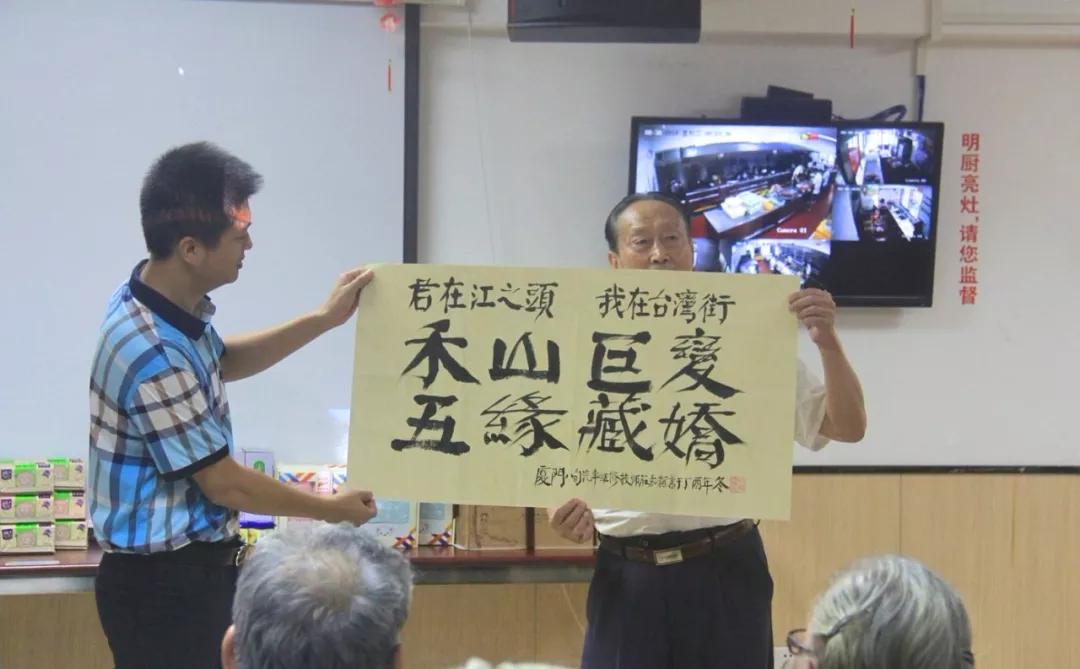 君在江之頭 我在台灣街
禾山巨變
五緣藏嬌
厦門
丁酉年冬
明厨亮灶,请您监督
Camera 01